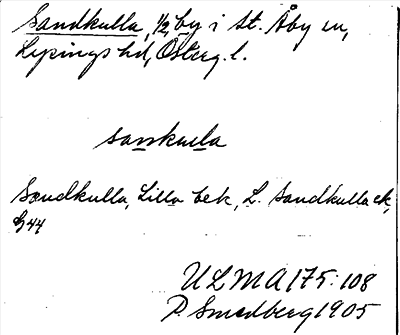 Sandkulla, 1/2, by i St. Åby sn,
Lysings hd, Österg. l.
sankulla
Sandkulla, Lilla bek, L. Sandkulla ek,
G44
ULMA 175:108
P Smedberg 1905